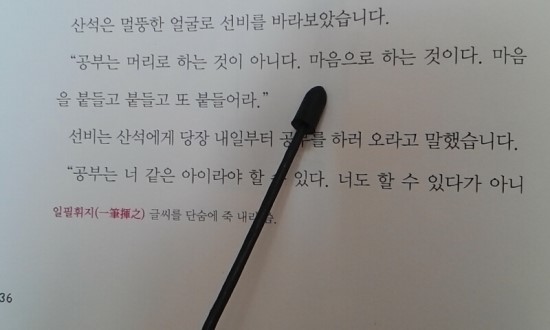 산석은 멀뚱한 얼굴로 선비를 바라보았습니다.
“공부는 머리로 하는 것이 아니다. 마음으로 하는 것이다. 마음
을 붙들고 붙들고 또 붙들어라.”
선비는 산석에게 당장 내일부터 공부를 하러 오라고 말했습니다.
“공부는 너 같은 아이라야 할 수 있다. 너도 할 수 있다가 아니
일필휘지(一筆揮之) 글씨를 단숨에 죽 내려
36